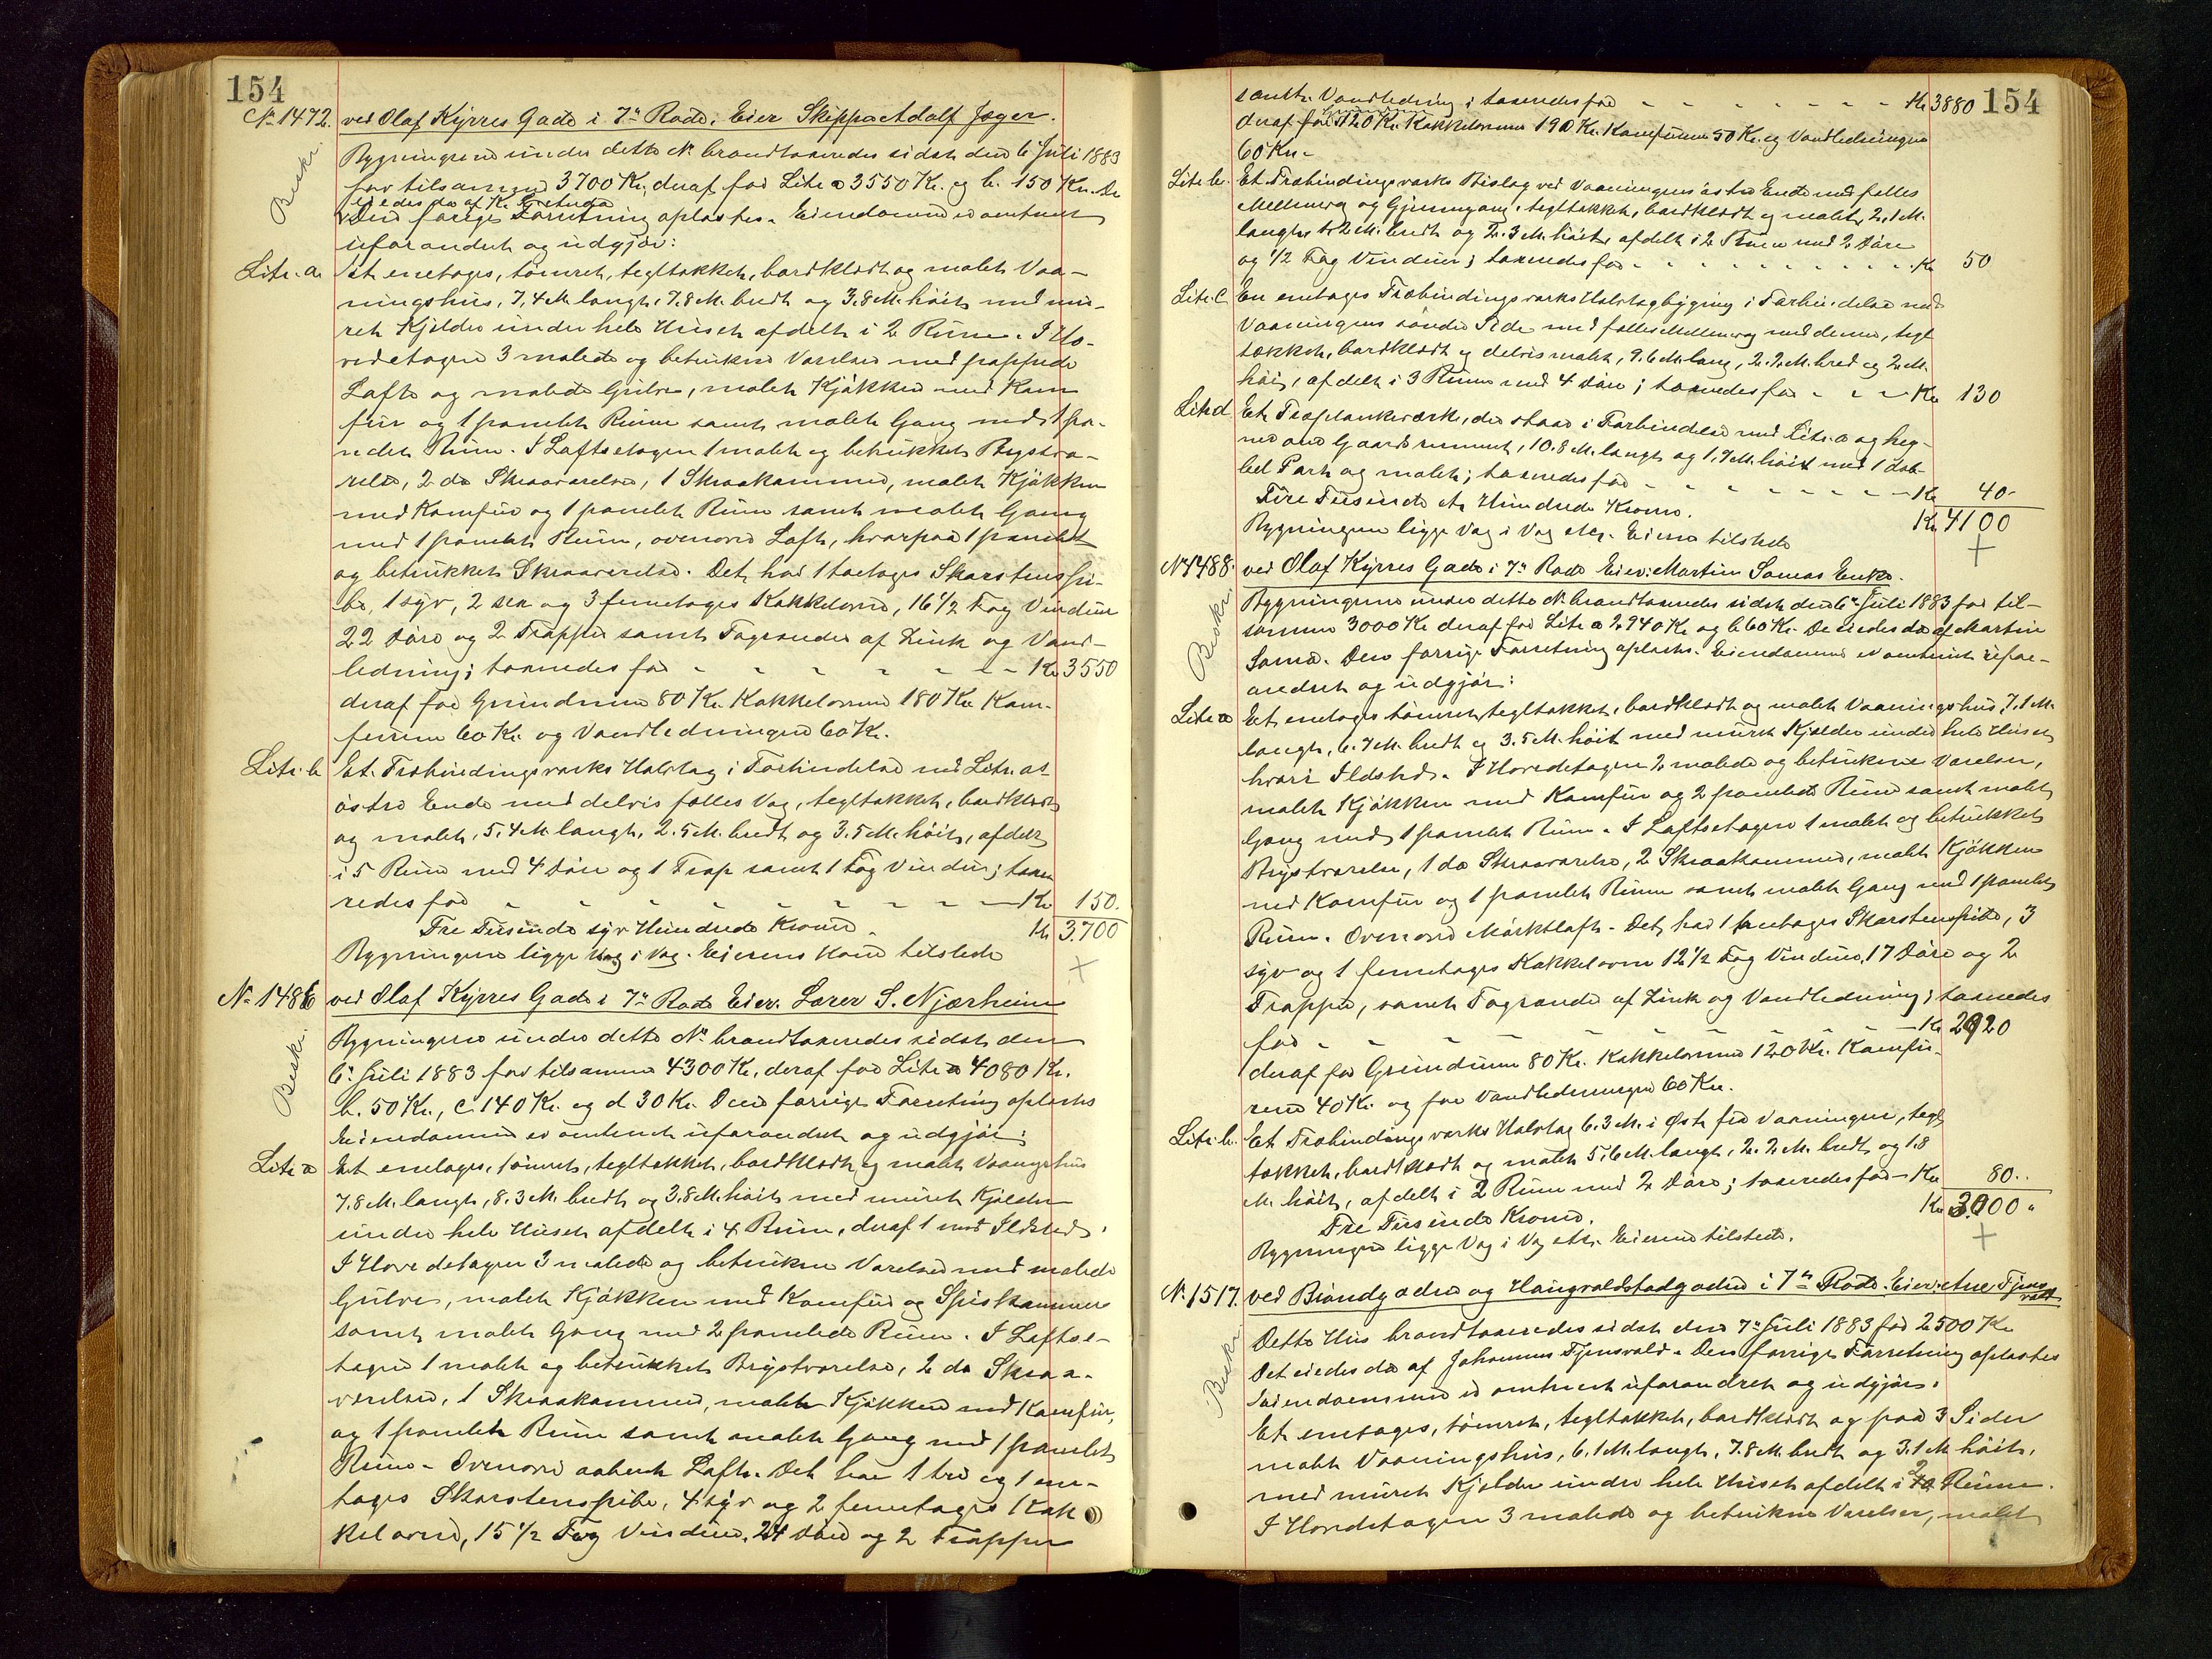 154
No 1472. ved Olaf Kyrres Gade i 7de Rode. Eier Skipper Adolf Jæger.
Beskr.
Bygningerne under dette No brandtaxeredes sidst den 6te Juli 1883
for tilsammen 3700 Kr, deraf for Litr a 3550 Kr. og b. 150 Kr. De
eiedes da af K.
Den forrige Forretning oplæstes. Eiendommen er omtrent
uforandret og udgjør:
Litr. a Et enetages, tømret, tegltækket, bordklædt og malet Vaa-
ningshus, 7,4 M. langt, 7,8 M. bredt og 3,8 M. høit med mu-
ret Kjelder under hele Huset afdelt i 2 Rum. I Ho-
vedetagen 3 malede og betrukne Værelser med pappede
Lofte og malede Gulve, malet Kjøkken med Kom
fur og 1 panelet Rum samt malet Gang med 1 pa-
nelet Rum. I Loftsetagen 1 malet og betrukket Brystvæ-
relse, 2 do Skraaværelser, 1 Skraakammer, malet Kjøkken
med Komfur og 1 panelet Rum samt malet Gang
med 1 panelet Rum, ovenover Loft, hvorpaa 1 panelet
og betrukket Skraaværelse. Det har 1 toetages Skorstenspi-
be, 1 syv, 2 sex og 3 femetages Kakkelovne, 16 1/2 Fag Vinduer
22 Døre og 2 Trapper samt Tagrender af Zink og Vand-
ledning; taxeredes for - - - - - - Kr 3550
deraf for Grundmur 80 Kr. Kakkelovne 180 Kr Kom-
furene 60 Kr. og Vandledningen 60 Kr.
Litr. b Et Træbindingsværks Halvtag i Forbindelse med Litr. a's
østre Ende med delvis fælles Væg, tegltækket, bordklædt
og malet, 5,4 M. langt, 2.5 M. bredt og 3.5 M. høit, afdelt
i 5 Rum med 4 Døre og 1 Trap samt 1 Fag Vindu; taxe
redes for - - - - - - - - Kr 150.
Tre Tusinde syv Hundrede Kroner. Kr 3.700
Bygningerne ligge Væg i Væg. Eierens Kone tilstede
No 1486 ved Olaf Kyrres Gade i 7de Rode Eier. Lærer S. Njærheim
Beskr.
Bygningerne under dette No brandtaxeredes sidst den
6te Juli 1883 for tilsammen 4300 Kr, deraf for Litr a 4080 Kr.
b. 50 Kr., c 140 Kr. og d 30 Kr. Den forrige Forretning oplæstes
Eiendommen er omtrent uforandret og udgjør:
Litr a Et enetages, tømret, tegltækket, bordklædt og malet Vaangshus
7.8 M. langt, 8.3 M. bredt og 3.8 M. høit med muret Kjelder
under hele Huset afdelt i 4 Rum, deraf 1 med Ildsted.
I Hovedetagen 3 malede og betrukne Værelser med malede
Gulve, malet Kjøkken med Komfur og Spiskammer
samt malet Gang med 2 panelede Rum. I Loftse-
tagen 1 malet og betrukket Brystværelse, 2 do Skraa-
værelser, 1 Skraakammer, malet Kjøkken med Komfur,
og 1 panelet Rum samt malet Gang med 1 panelet
Rum. Ovenover aabent Loft. Det har 1 tre og 1 ene-
tages Skorstenspibe, 4 syv og 2 femetages Kak
kelovne, 15 1/2 Fag Vinduer, 24 Døre og 2 Trapper
154
samt Vandledning; taxeredes for - - - - - - Kr 3880
deraf for Grundmur 120 Kr. Kakkelovne 190 Kr. Komfurene 50 Kr. og Vandledningen
60 Kr.
Litr b. Et Træbindingsværks Bislag ved Vaaningens østre Ende med fælles
Mellemvæg og Gjennemgang, tegltækket, bordklædt og malet, 2,1 M.
langt, 1.2 M. bredt og 2.3 M. høit, afdelt i 2 Rum med 2 Døre
og 1/2 Fag Vinduer; taxeredes for - - - - - - Kr 50
Litr. C En enetages Træbindingsværks Halvtagbygning i Forbindelse med
Vaaningens søndre Side med fælles Mellemvæg med denne, tegl
tækket, bordklædt og delvis malet, 9.6 M. lang, 2.2 M. bred og 2 M.
høi, afdelt i 3 Rum med 4 Døre; taxeredes for - - - Kr 130
Litr d Et Træplankeværk, der staar i Forbindelse med Litr. a og heg-
ner om Gaardsrummet, 10.8 M. langt og 1.7 M. høit med 1 dob-
bel Port og malet; taxeredes for - - - - - - Kr 40-
Fire Tusinde et Hundrede Kroner. Kr 4100
Bygningerne ligge Væg i Væg etc. Eieren tilstede
No 1488. ved Olaf Kyrres Gade i 7de Rode Eier: Martin Sømæs Enke.
Beskr.
Bygningerne under dette No brandtaxeredes sidst den 6te Juli 1883 for til-
sammen 3000 Kr deraf for Litr a 2940 Kr og b 60 Kr. De eiedes da af Martin
Sømæ. Den forrige Forretning oplæstes. Eiendommen er omtrent ufor-
andret og udgjør:
Litr a Et enetages tømret, tegltækket, bordklædt og malet Vaaningshus, 7.1 M.
langt, 6.7 M. bredt og 3.5 M. høit med muret Kjelder under hele Huset
hvori Ildsted. I Hovedetagen 2 malede og betrukne Værelser,
malet Kjøkken med Komfur og 2 panelede Rum samt malet
Gang med 1 panelet Rum. I Loftsetagen 1 malet og betrukket
Brystværelse, 1 do Skraaværelse, 2 Skraakammer, malet Kjøkken
med Komfur og 1 panelet Rum samt malet Gang med 1 panelet
Rum. Ovenover Mørktloft. Det har 1 Skorstenspibe, 3
syv og 1 femetages Kakkelovne 12 1/2 Fag Vinduer, 17 Døre og 2
Trapper, samt Tagrender af Zink og Vandledning; taxeredes
for - - - - - - - Kr 2920
deraf for Grundmur 80 Kr. Kakkelovne 120 Kr. Komfu-
rene 40 Kr. og for Vandledningen 60 Kr.
Litr. b. Et Træbindingsværks Halvtag 6.3 M. i Øst for Vaaningen, tegl
tækket, bordklædt og malet 5,6 M. langt, 2.2 M. bredt og 1.8
M. høit, afdelt i 2 Rum med 2 Døre; taxeredes for - Kr 80..
Tre Tusinde Kroner. Kr 3000 "
Bygningerne ligge Væg i Væg etc. Eieren tilstede.
No 1517. ved Brøndgaden og Haugvaldstadgaden i 7de Rode. Eier: Ane Tjens
vold
Beskr
Dette Hus brandtaxeredes sidst den 7de Juli 1883 for 2500 Kr
Det eiedes da af Johannes Tjensvold. Den forrige Forretning oplæstes
Eiendommen er omtrent uforandret og udgjør.
Et enetages, tømret, tegltækket, bordklædt og paa 3 Sider
malet Vaaningshus, 6.1 M. langt, 7.8 M. bredt og 3.1 M høit,
med muret Kjelder under hele Huset afdelt i 2 Rum.
I Hovedetagen 3 malede og betrukne Værelser, malet